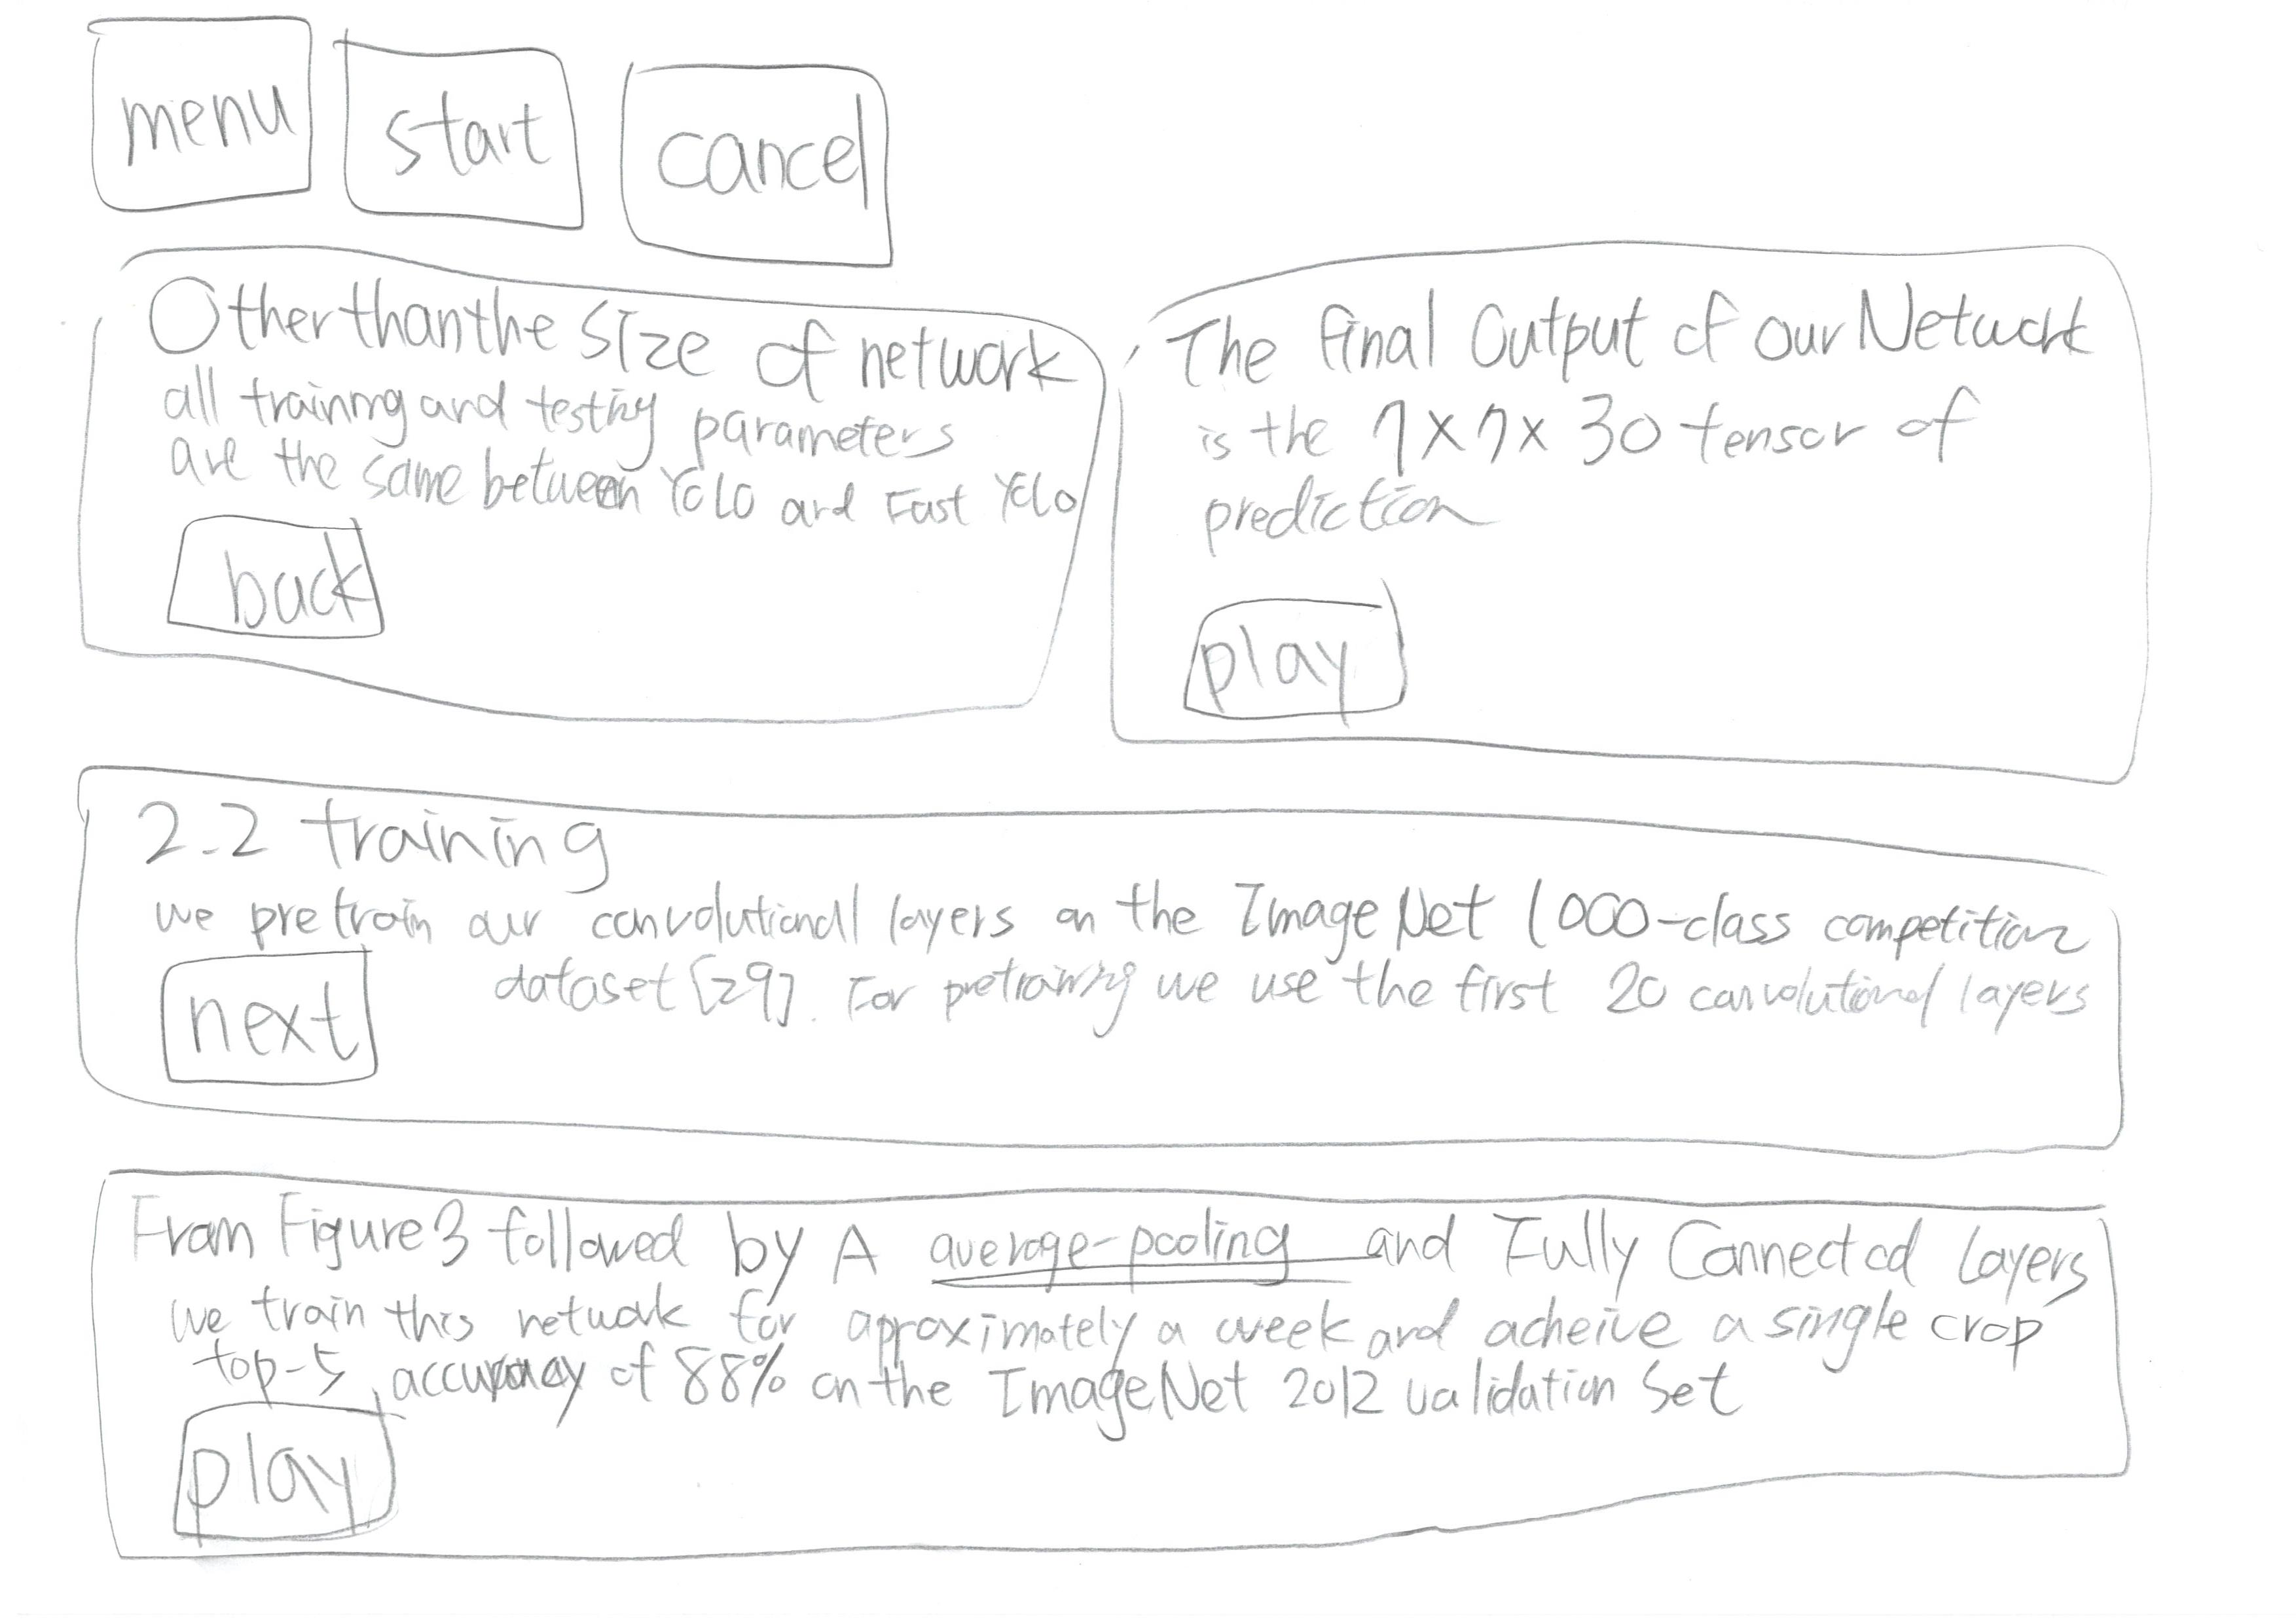 menu
start
cancel
Other than the size of network
all training and testing parameters
are the same between YOLO and Fast YOLO
back
The final Output of our Network
is the 7x7x 30 tensor of
prediction
play
2.2 training
we pretrain our convolutional layers on the ImageNet 1000-class competition
dataset [29]. For pretraining we use the first 20 convolutional layers
next
From Figure 3 followed by A average-pooling and Fully Connected Layers
we train this network for aproximately a week and acheive a single crop
top-5 accuracy of 88% on the ImageNet 2012 validation Set
play